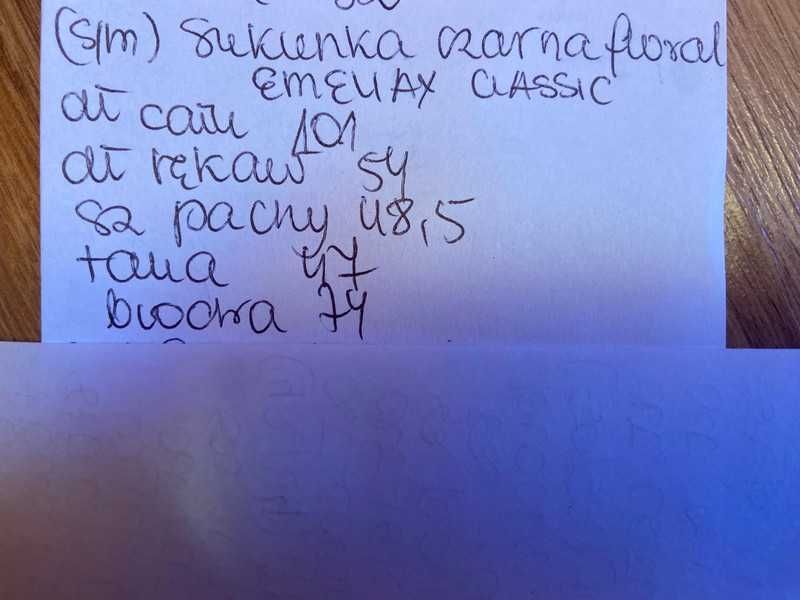 (S/M) Sukienka czarna floral
EMELIAX CLASSIC
dł całk 101
dł rękaw 54
sz pachy 48,5
talia 47
biodra 74